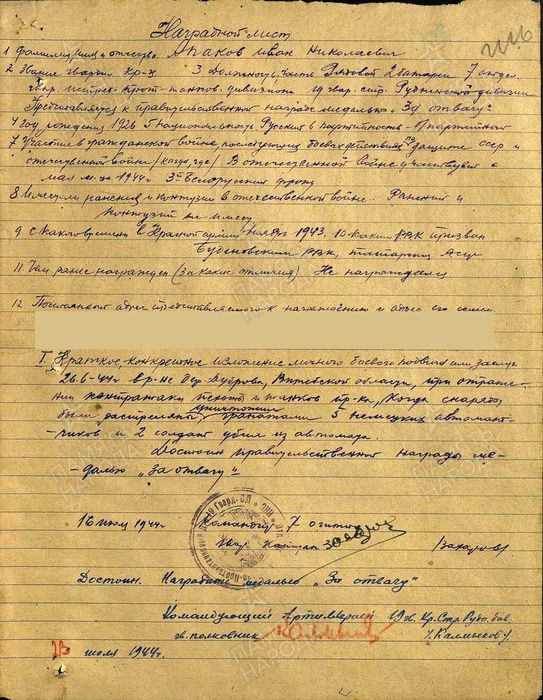 Наградной лист
1 Фамилия, имя и отчество Апаков Иван Николаевич
2 Звание гвардии кр-ц 3 Должность, часть Рядовой 2 батареи 7 отдел.
гвар. истреб. прот. танков. дивизиона 19 гвар. стр. Рудненской дивизии
Представляется к правительственной награде медалью "За отвагу"
4 год рождения 1926 5 Национальность Русский 6 партийность - беспартийный
7 Участие в гражданской войне, последующих боевых действиях по защите ссср и
отечественной войне (когда, где) В отечественной войне участвует с
мая 1944г. 3й Белорусский фронт
8 Имеет ли ранения и контузии в отечественной войне.. Ранений и
контузий не имеет
9 с какого времени в Красной армии ноябрь 1943. 10 Каким РВК призван
РВК, Татарский Асср
11 Чем ранее награжден (за какие отличия) Не награждался
12 Постоянный адрес представляемого к награждению и адрес его семьи
I. Краткое, конкретное изложение личного боевого подвига или заслуг
26.6-44г в р-не дер Дуброва, Витебской области, при отраже-
нии контратаки пехоты и танков пр-ка, когда снаряды
были расстреляны, уничтожил гранатами 5 немецких автомат-
чиков и 2 солдат убил из автомата.
Достоин правительственной награды ме-
далью "За отвагу"
16 июля 1944г. Командир 7 огиптд
гвар Капитан Захаров
Достоин. Наградить медалью "За отвагу"
Командующий Артиллерией 19 гв. Кр. Стр. Рудн. див.
гв. полковник /Калмыков/
июля 1944г.